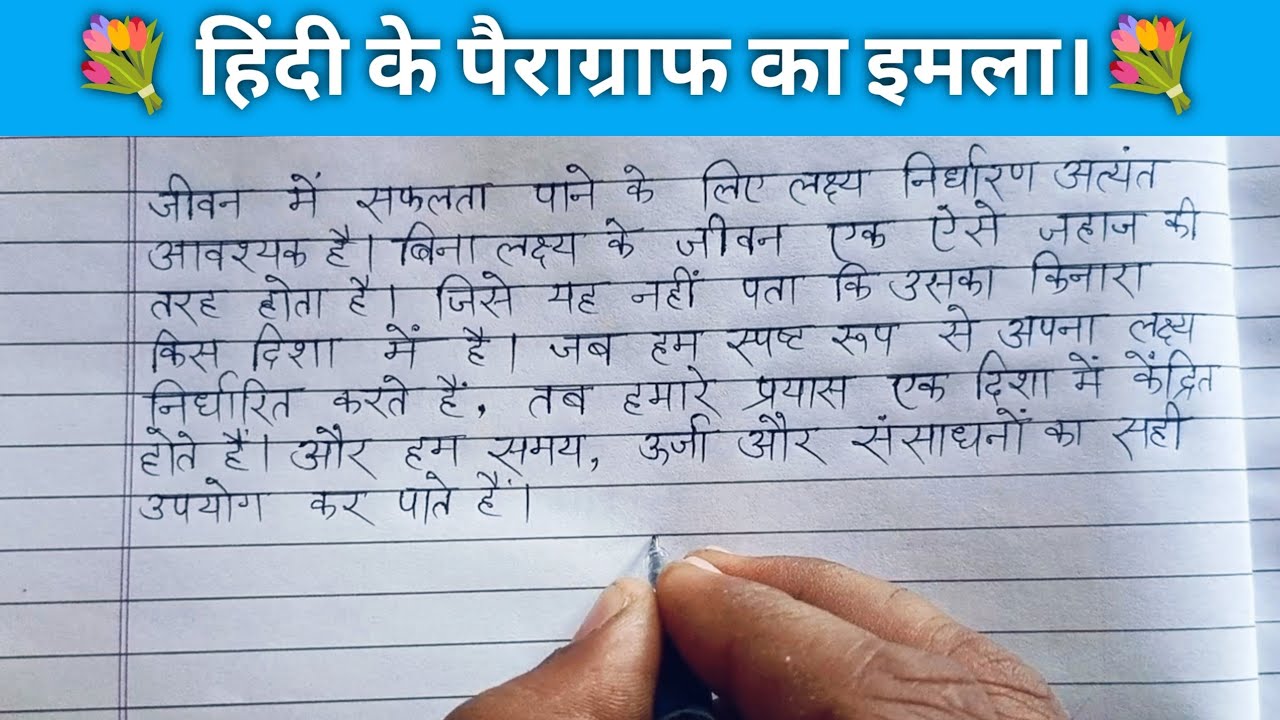 हिंदी के पैराग्राफ का इमला।
जीवन में सफलता पाने के लिए लक्ष्य निर्धारण अत्यंत
आवश्यक है। बिना लक्ष्य के जीवन एक ऐसे जहाज की
तरह होता है। जिसे यह नहीं पता कि उसका किनारा
किस दिशा में है। जब हम स्पष्ट रूप से अपना लक्ष्य
निर्धारित करते हैं, तब हमारे प्रयास एक दिशा में केंद्रित
होते हैं। और हम समय, ऊर्जा और संसाधनों का सही
उपयोग कर पाते हैं।